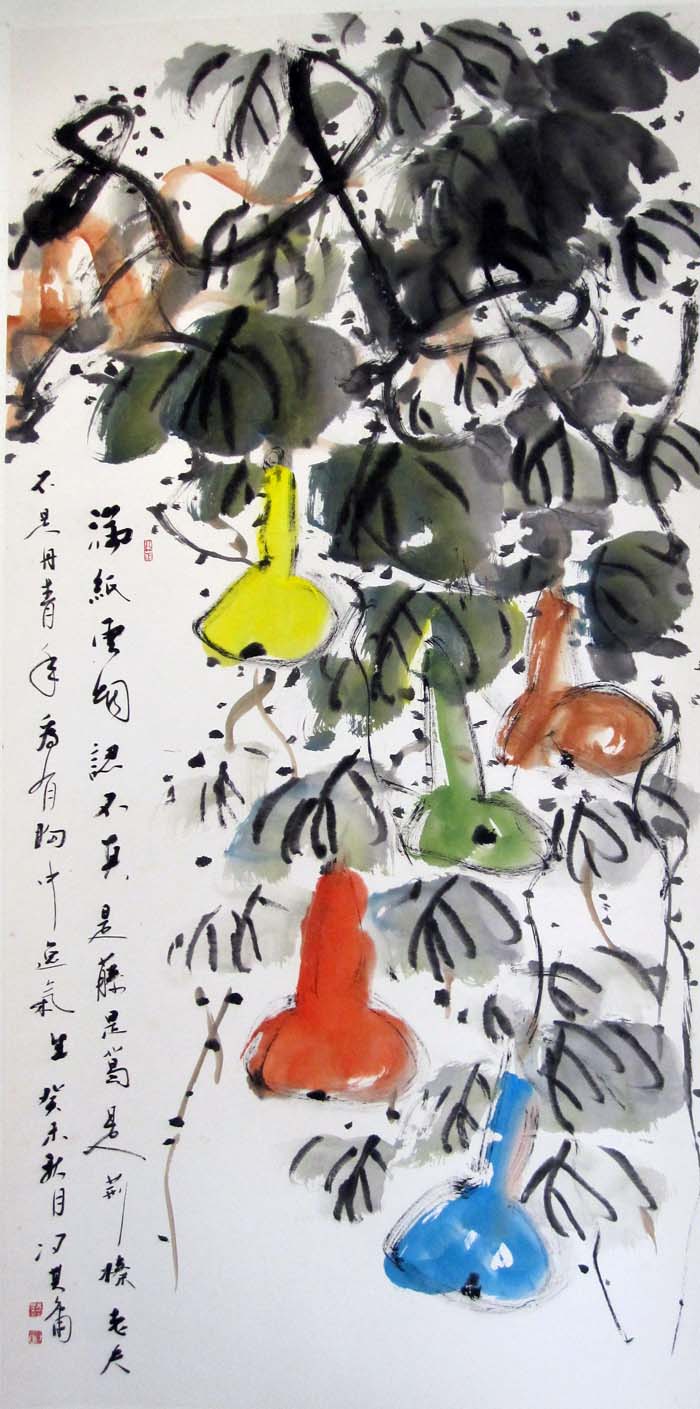 滿紙雲烟認不真是藤是葛是荆榛老夫
不是丹青手為有胸中逸氣生癸未秋月冯其庸